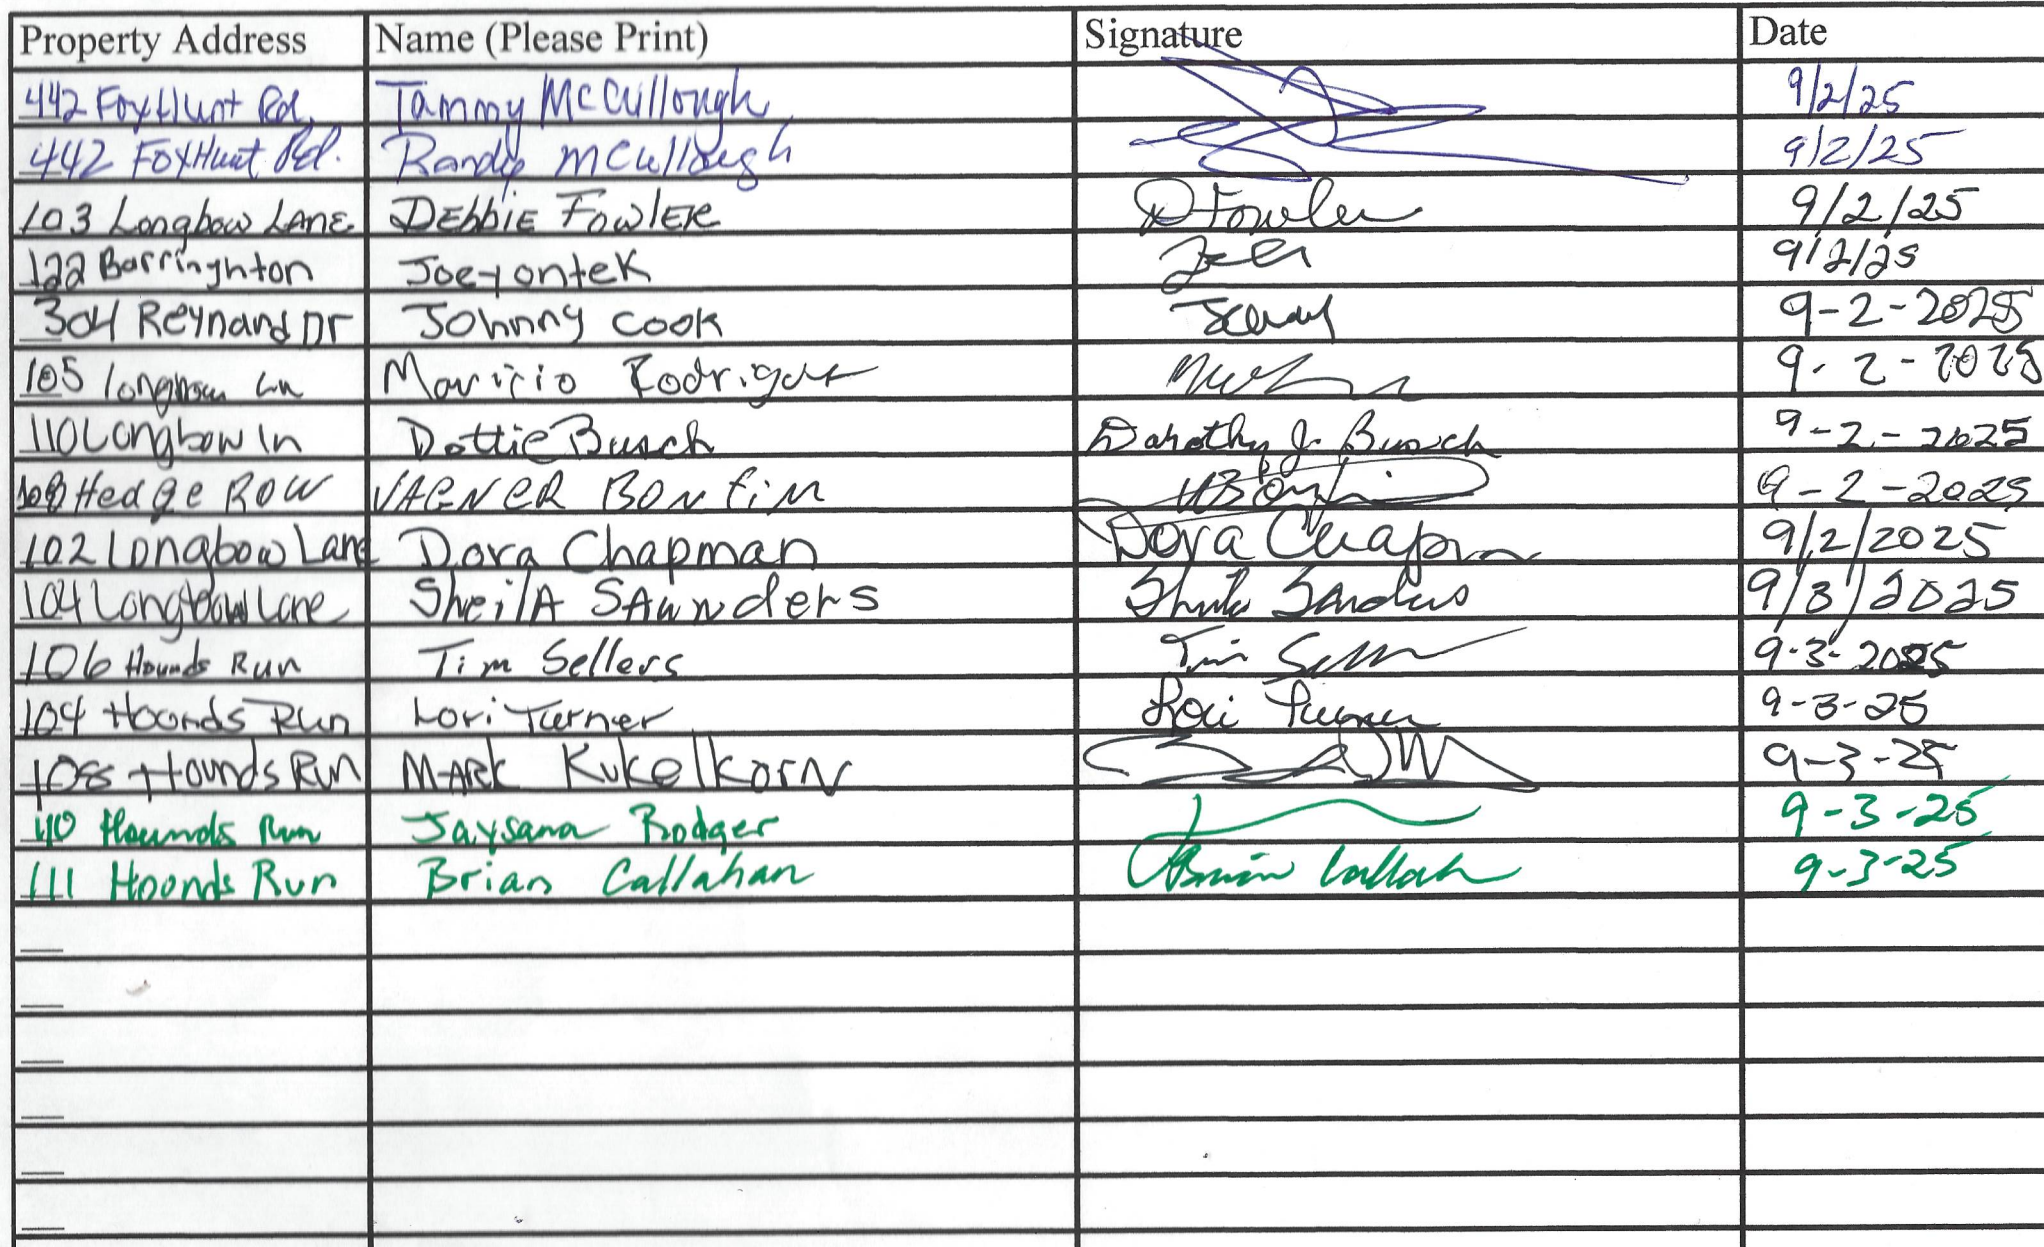 Property Address Name (Please Print) Signature Date
442 FoxHunt Rd. Tammy McCullough 9/2/25
442 FoxHunt Rd. Randy McCullough 9/2/25
103 Longbow LANE DEbbiE FowlER D Fowler 9/2/25
122 Barringhton Joeyontek 9/2/25
304 Reynard Dr Johnny Cook 9-2-2025
105 longbow Ln Mauricio Rodriguez 9-2-2025
110 Longbow ln Dottie Busch Dorothy J. Busch 9-2-2025
Hedge ROW VAGNER BONFIM 9-2-2025
102 Longbow Lane Dora Chapman Dora Chapm 9/2/2025
104 Longbow Lane SheilA SAunders 9/3/2025
106 Hounds Run Tim Sellers Tim 9-3-2025
104 Hounds Run Lori Turner Lori Turner 9-3-25
108 Hounds Run MARK KukelkorN 9-3-25
110 Hounds Run Jaysana Rodger 9-3-25
111 Hounds Run Brian Callahan Brian Callah 9-3-25